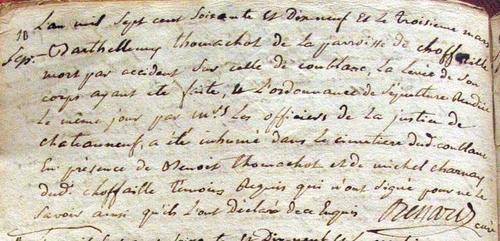 10 L'an mil sept cent soixante et dix neuf et le troisieme mars
Sep. Barthellemy thomachot de la parroisse de choffaille
mort par accident sur celle de coublanc, la levée de son
corps ayant eté faite, et L'ordonnance de sépulture rendüe
Le même jour par mrs Les officiers de la justice de
chateauneuf, a été inhumé dans le cimetiere dud. coublanc
En présence de Benoit thomachot et de michel charnay
dud. choffaille temoins Requis qui n'ont signé pour ne le
savoir ainsi qu'ils L'ont déclaré de ce Enquis
curé